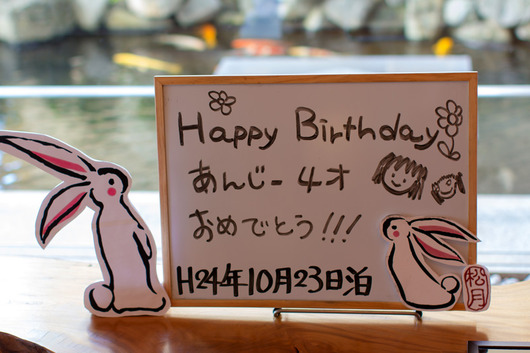 Happy Birthday
あんじー 4才
おめでとう!!!
H24年10月23日泊
松月